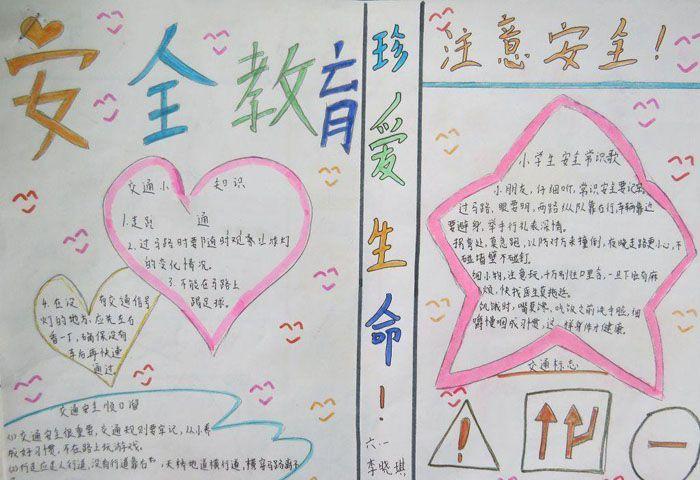 安全教育
交通小知识
1.走路 通
2.过马路时要随时观察红绿灯
的变化情况。
3.不能在马路上
踢足球。
4.在没有交通信号
灯的地方,应先左右
看一下,确保没有
车后再快速
通过。
交通安全顺口溜
(1)交通安全很重要,交通规则要牢记,从小养
成好习惯,不在路上玩游戏。
(2)行走应走人行道,没有行道靠右
珍爱生命!
六.一
李晓琪
注意安全!
小学生安全常识歌
小朋友,仔细听,常识安全要记牢
过马路,眼要明,两路纵队靠右行,车辆靠边
要避身,举手行礼表深情。
拐弯处,莫急跑,以防对方来撞倒,夜晚走路更小心,不
碰墙壁不碰钉。
细小物,注意玩,千万别往口里含,一旦下咽有麻
烦,快找医生莫拖延。
饥饿时,嘴莫馋,吃饭之前洗手脸,细
嚼慢咽成习惯,这样身体才健康。
交通标志